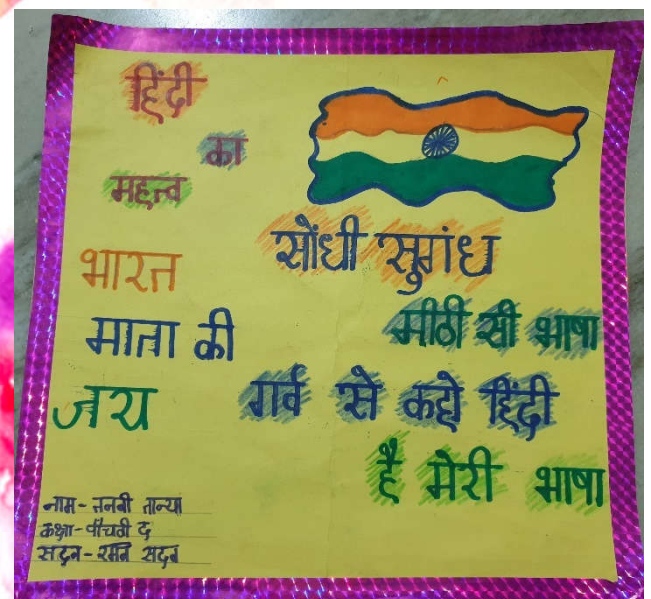 हिंदी
का
महत्व
भारत
माता की
जय
सोंधी सुगंध
मीठी सी भाषा
गर्व से कहो हिंदी
है मेरी भाषा
नाम - तनवी तान्या
कक्षा - द
सदन - रमन सदन